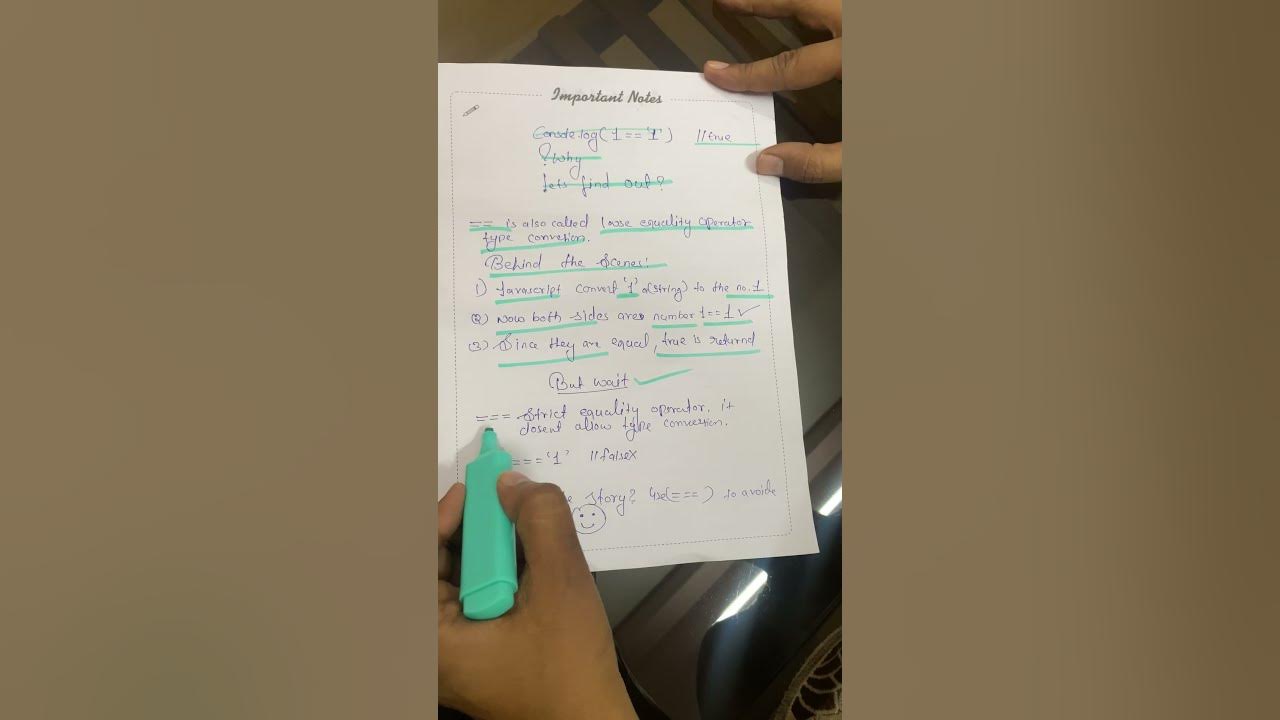 Important Notes
Console.log( 1 == '1' ) //true
? Why
Lets find out?
== is also called loose equality operator
type convesion.
Behind the Scenes:
1) Javascript convert '1' a(string) to the no. 1
2) Now both sides are number 1 == 1 ✓
3) Since they are equal, true is returnd
But wait ✓
=== Strict equality operator. it
dosent allow type convesion.
=== '1' //false X
story? Use(===) to avoide